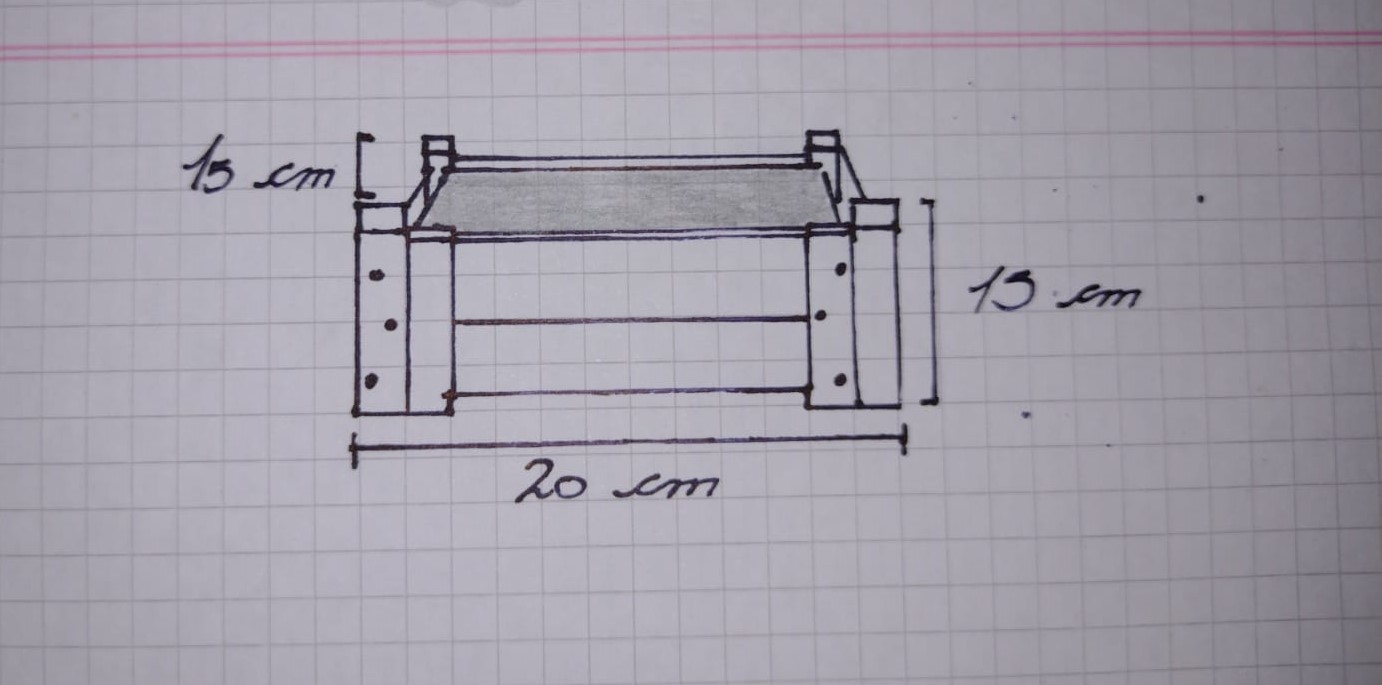 15 cm
15 cm
20 cm